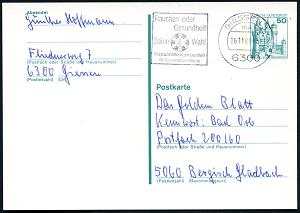 Absender
Günther Hoffmann
Fliednerweg 7
(Postfach oder Straße und Hausnummer)
6300 Giessen
(Postleitzahl) (Ort)
Rauchen oder
Gesundheit
Deine Wahl
GIESSEN
6300
50
Postkarte
Das Goldene Blatt
Kennwort: Bad Orb
Postfach 200160
(Postfach oder Straße und Hausnummer)
5060 Bergisch Gladbach
(Postleitzahl) (Bestimmungsort)